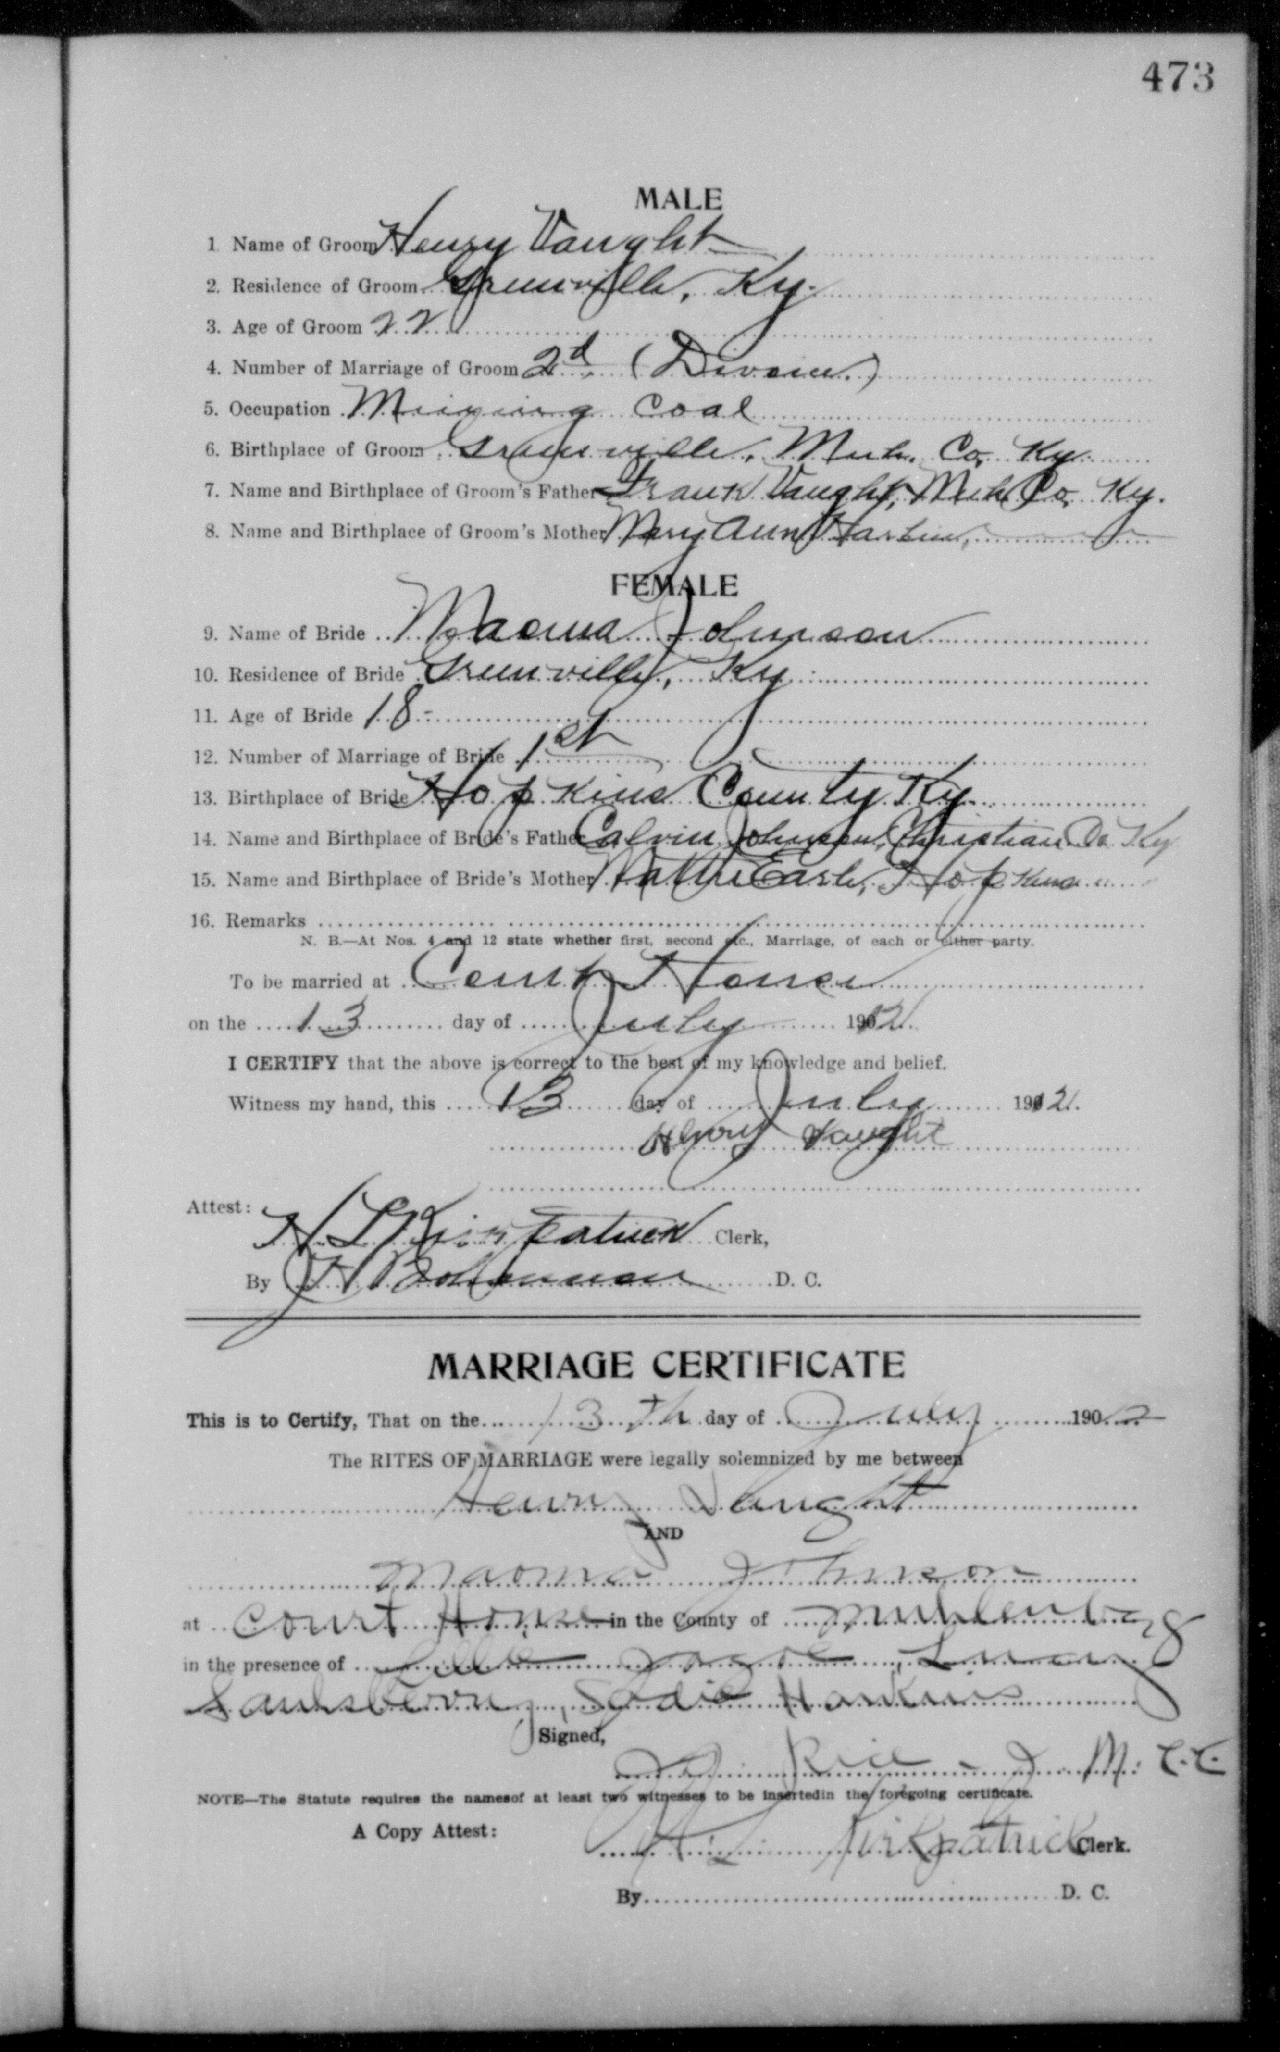 473
MALE
1. Name of Groom Henry Vaught
2. Residence of Groom Greenville, Ky.
3. Age of Groom 22
4. Number of Marriage of Groom 2d (Divorce.)
5. Occupation Mining Coal
6. Birthplace of Groom Greenville, Muh. Co, Ky.
7. Name and Birthplace of Groom's Father Frank Vaught, Muh Co, Ky.
8. Name and Birthplace of Groom's Mother Mary Ann
FEMALE
9. Name of Bride Maoma Johnson
10. Residence of Bride Greenville, Ky
11. Age of Bride 18-
12. Number of Marriage of Bride 1st
13. Birthplace of Bride Hopkins County Ky.
14. Name and Birthplace of Bride's Father Calvin Johnson, Christian Co Ky
15. Name and Birthplace of Bride's Mother Mattie Earle, Hopkins
16. Remarks
N. B.—At Nos. 4 and 12 state whether first, second etc., Marriage, of each or either party.
To be married at Court House
on the 13 day of July 1912.
I CERTIFY that the above is correct to the best of my knowledge and belief.
Witness my hand, this 13 day of July 1912.
Henry Vaught
Attest:
H L Kirkpatrick Clerk,
By J H Bohannon D. C.
MARRIAGE CERTIFICATE
This is to Certify, That on the 13th day of July 19012
The RITES OF MARRIAGE were legally solemnized by me between
Henry Vaught
AND
Maoma Johnson
at Court House in the County of Muhlenberg
in the presence of Lucy
Saulsberry, Sadie Hankins
Signed,
Rice - J. M. C. C.
NOTE—The Statute requires the namesof at least two witnesses to be insertedin the foregoing certificate.
A Copy Attest:
H L Kirkpatrick Clerk.
By D. C.